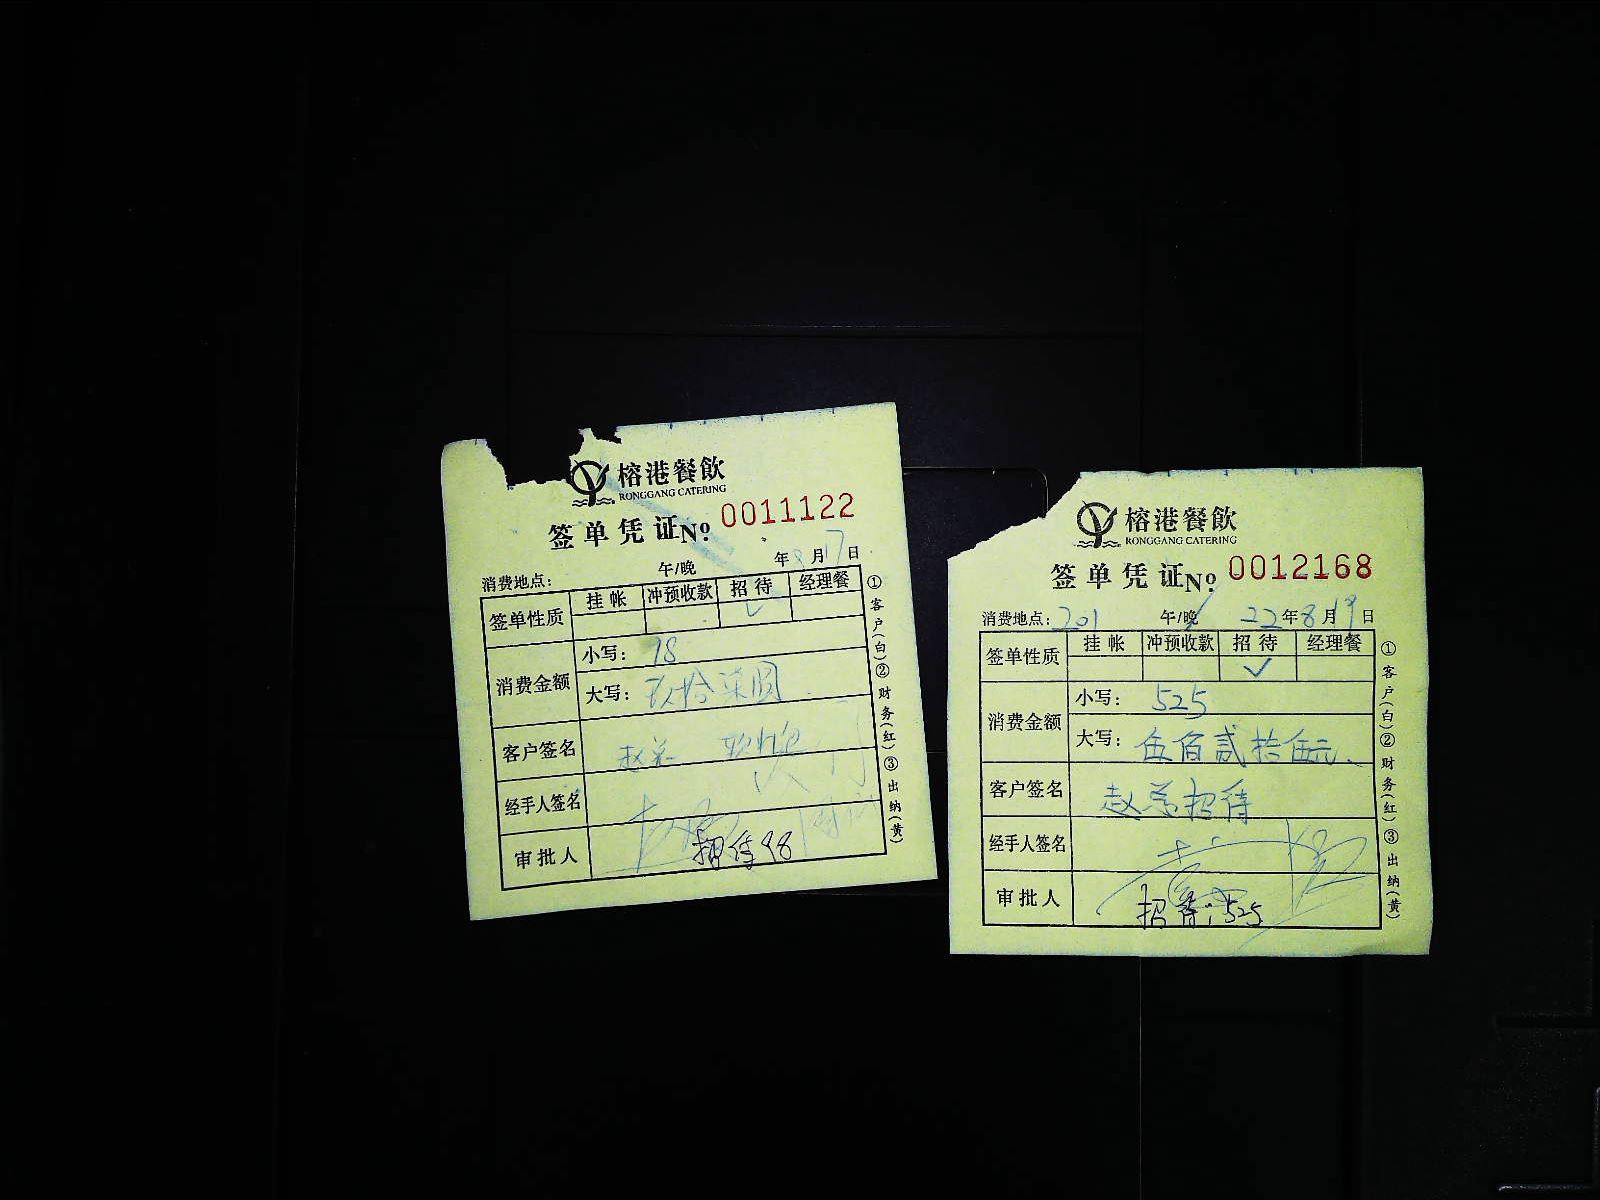 榕港餐飲
RONGGANG CATERING
签单凭证 No 0011122
年 8 月 17 日
消费地点: 午/晚
签单性质 挂帐 冲预收款 招待 经理餐
✓
消费金额 小写: 98
大写: 玖拾 圆
客户签名 赵
经手人签名
审批人 招待98
①客户(白)②财务(红)③出纳(黄)
榕港餐飲
RONGGANG CATERING
签单凭证 No 0012168
消费地点: 201 午/晚 22 年 8 月 19 日
签单性质 挂帐 冲预收款 招待 经理餐
✓
消费金额 小写: 525
大写: 伍佰贰拾伍元
客户签名 赵 招待
经手人签名
审批人 招待:525
①客户(白)②财务(红)③出纳(黄)